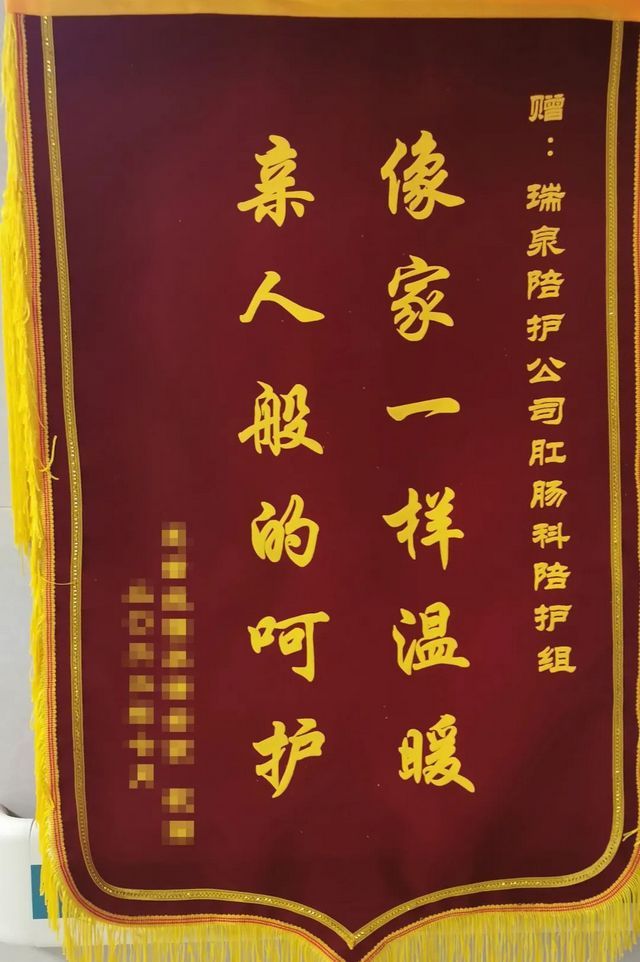 赠：瑞泉陪护公司肛肠科陪护组
像家一样温暖
亲人般的呵护